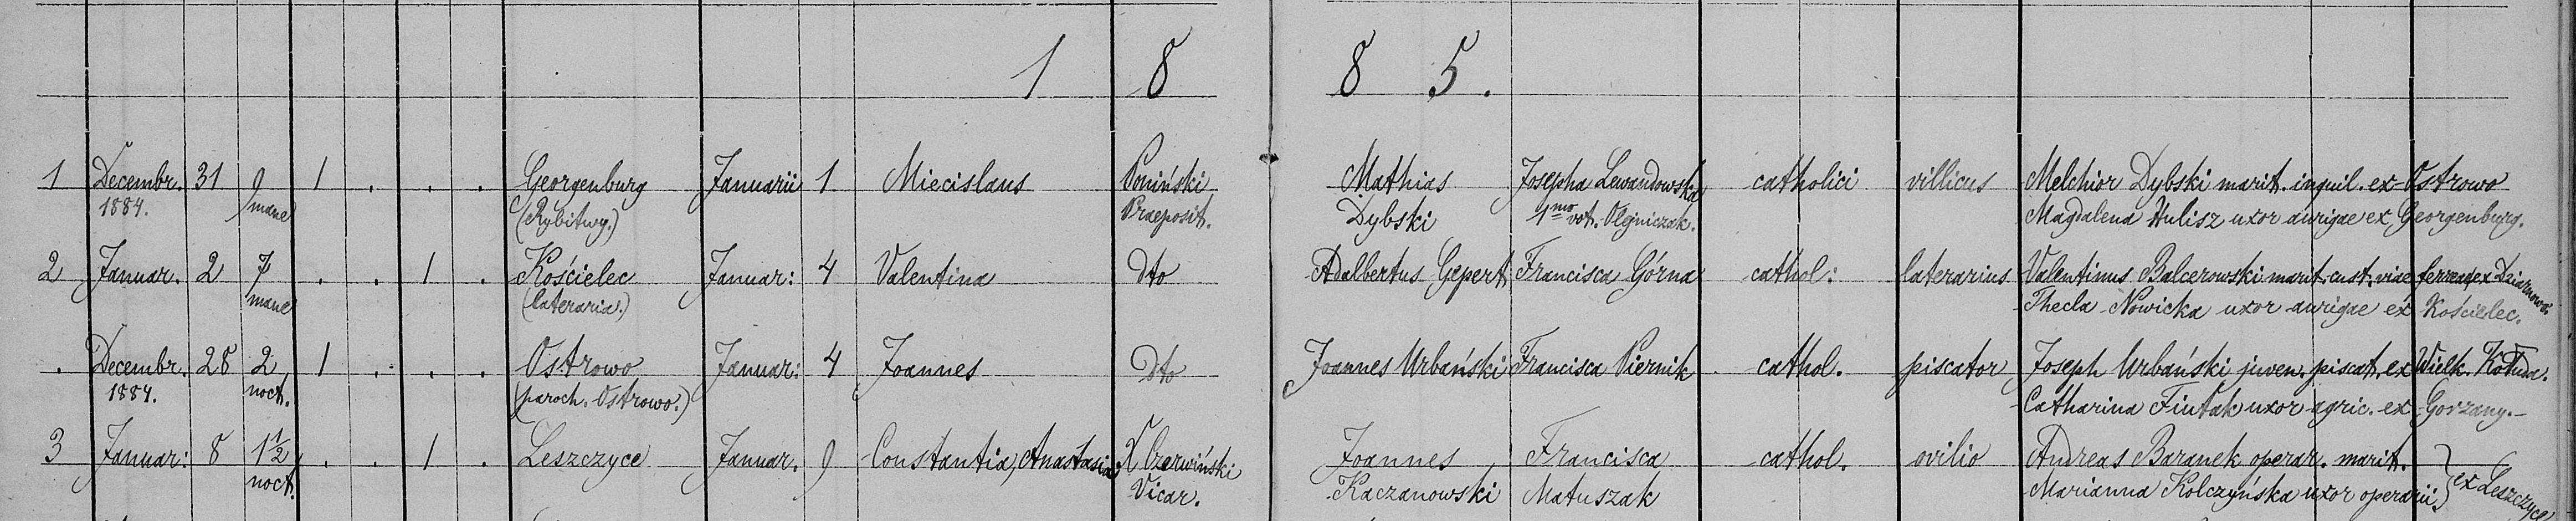 1 8 8 5.
1 Decembr. 31 9 1 . . . Georgenburg Januarii 1 Miecislaus Poniński Mathias Josepha Lewandowska catholici villicus Melchior Dybski marit. inquil. ex Ostrowo
1884. mane (Rybitwy.) Praeposit. Dybski 1mo vot. Olejniczak. Magdalena Hulisz uxor aurigae ex Georgenburg.
2 Januar. 2 7 . . 1 . Kościelec Januar: 4 Valentina dto Adalbertus Gepert Francisca Górna cathol: laterarius Valentinus Balcerowski marit. cust. viae ferreae ex Dziarnowo.
mane (lateraria.) Thecla Nowicka uxor aurigae ex Kościelec.
. Decembr. 28 2 1 . . . Ostrowo Januar: 4 Joannes dto Joannes Urbański Francisca Piernik cathol. piscator Joseph Urbański juven. piscat. ex Wielk. Kołuda.
1884. noct. (paroch. Ostrowo.) Catharina Fiutak uxor agric. ex Gorzany.
3 Januar: 8 1½ . . 1 . Leszczyce Januar. 9 Constantia, Anastasia X Czerwiński Joannes Francisca cathol. ovilio Andreas Baranek operar. marit.
noct. Vicar. Kaczanowski Matuszak Marianna Kolczyńska uxor operarii } ex Leszczyce